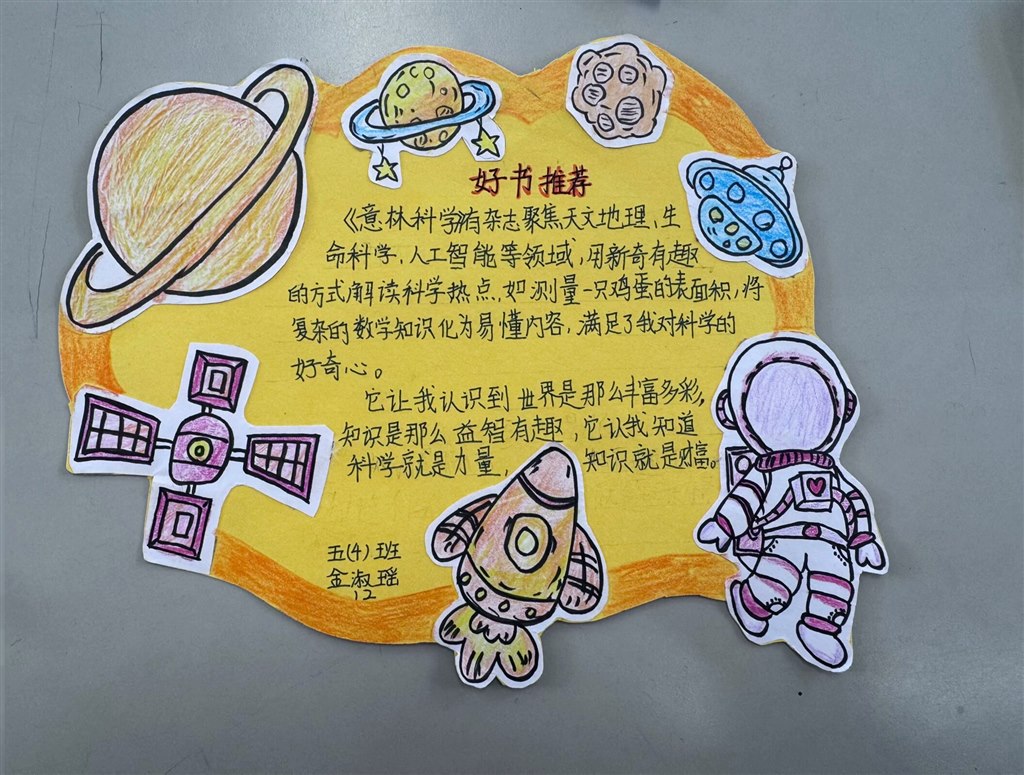 好书推荐
《意林科学》有杂志聚焦天文地理、生
命科学,人工智能等领域,用新奇有趣
的方式解读科学热点,如测量一只鸡蛋的表面积,将
复杂的数学知识化为易懂内容,满足了我对科学的
好奇心。
它让我认识到世界是那么丰富多彩,
知识是那么益智有趣,它让我知道
科学就是力量,知识就是财富。
五(4)班
金淑瑶
12